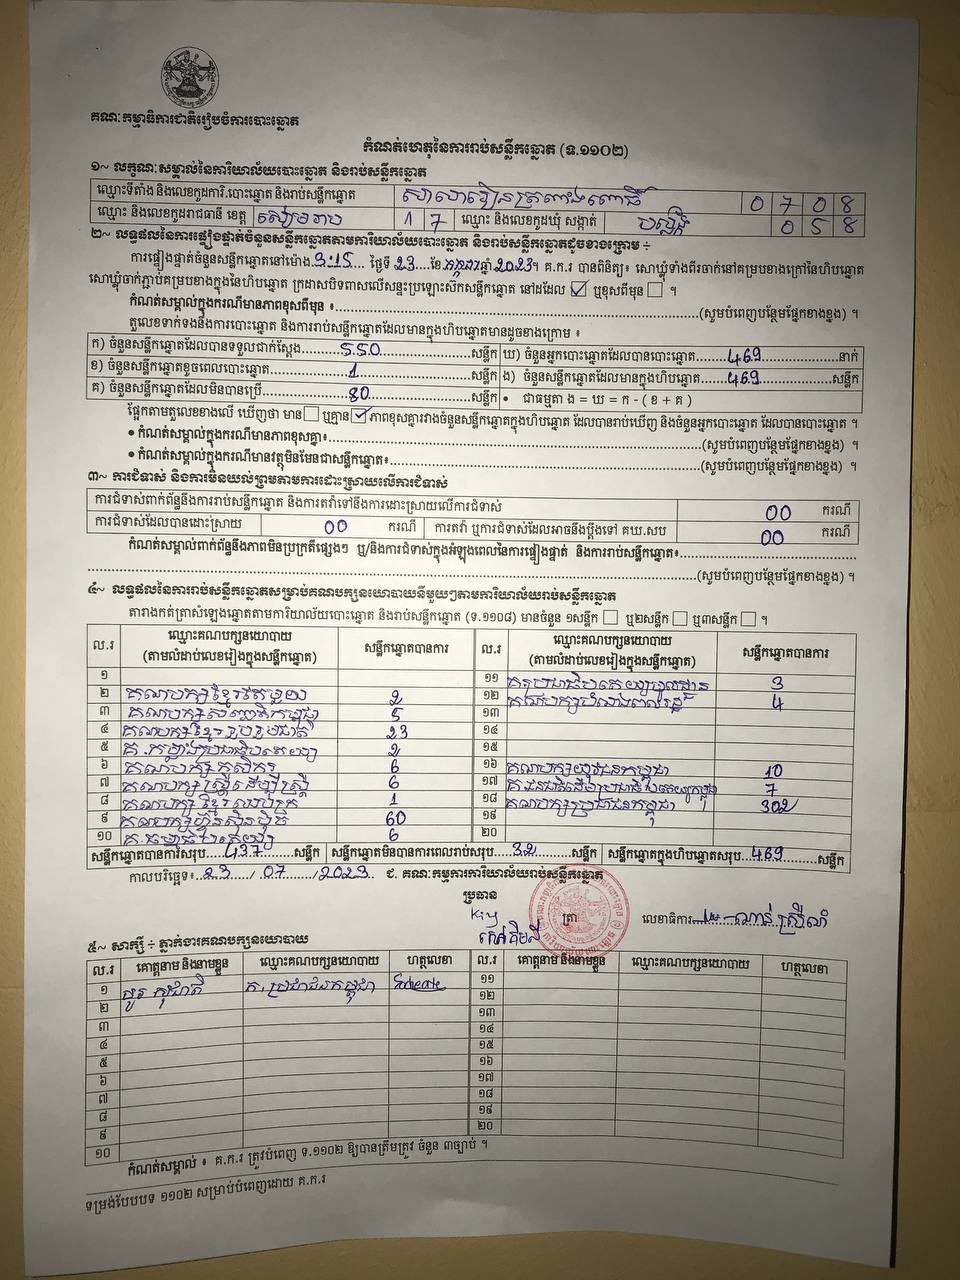 គណៈកម្មាធិការជាតិរៀបចំការបោះឆ្នោត
កំណត់ហេតុនៃការរាប់សន្លឹកឆ្នោត (ទ.១១០២)
១~ លក្ខណៈសម្គាល់នៃការិយាល័យបោះឆ្នោត និងរាប់សន្លឹកឆ្នោត
ឈ្មោះទីតាំង និងលេខកូដការិ.បោះឆ្នោត និងរាប់សន្លឹកឆ្នោត សាលារៀនត្រពាំងពោធិ៍ 0 7 0 8
ឈ្មោះ និងលេខកូដរាជធានី ខេត្ត សៀមរាប 1 7 ឈ្មោះ និងលេខកូដឃុំ សង្កាត់ 0 5 8
២~ លទ្ធផលនៃការផ្ទៀងផ្ទាត់ចំនួនសន្លឹកឆ្នោតតាមការិយាល័យបោះឆ្នោត និងរាប់សន្លឹកឆ្នោតដូចខាងក្រោម ÷
ការផ្ទៀងផ្ទាត់ចំនួនសន្លឹកឆ្នោតនៅម៉ោង 3:15 ថ្ងៃទី 23 ខែ កក្កដា ឆ្នាំ 2023 ។ គ.ក.រ បានពិនិត្យ៖ សោឃ្លុំទាំងពីរចាក់នៅគម្របខាងក្រៅនៃហិបឆ្នោត
សោឃ្លុំចាក់ភ្ជាប់គម្របខាងក្នុងនៃហិបឆ្នោត ក្រដាសបិទពាសលើសន្ទះប្រឡោះស៊ីកសន្លឹកឆ្នោត នៅដដែល ☑ ឬខុសពីមុន ☐ ។
កំណត់សម្គាល់ក្នុងករណីមានភាពខុសពីមុន ៖ (សូមបំពេញបន្ថែមផ្នែកខាងខ្នង) ។
តួលេខទាក់ទងនឹងការបោះឆ្នោត និងការរាប់សន្លឹកឆ្នោតដែលមានក្នុងហិបឆ្នោតមានដូចខាងក្រោម ៖
ក) ចំនួនសន្លឹកឆ្នោតដែលបានទទួលជាក់ស្តែង 550 សន្លឹក ឃ) ចំនួនអ្នកបោះឆ្នោតដែលបានបោះឆ្នោត 469 នាក់
ខ) ចំនួនសន្លឹកឆ្នោតខូចពេលបោះឆ្នោត 1 សន្លឹក ង) ចំនួនសន្លឹកឆ្នោតដែលមានក្នុងហិបឆ្នោត 469 សន្លឹក
គ) ចំនួនសន្លឹកឆ្នោតដែលមិនបានប្រើ 80 សន្លឹក • ជាធម្មតា ង = ឃ = ក - ( ខ + គ )
ផ្អែកតាមតួលេខខាងលើ ឃើញថា មាន ☐ ឬគ្មាន ☑ ភាពខុសគ្នារវាងចំនួនសន្លឹកឆ្នោតក្នុងហិបឆ្នោត ដែលបានរាប់ឃើញ និងចំនួនអ្នកបោះឆ្នោត ដែលបានបោះឆ្នោត ។
• កំណត់សម្គាល់ក្នុងករណីមានភាពខុសគ្នា៖ (សូមបំពេញបន្ថែមផ្នែកខាងខ្នង) ។
• កំណត់សម្គាល់ក្នុងករណីមានវត្ថុមិនមែនជាសន្លឹកឆ្នោត៖ (សូមបំពេញបន្ថែមផ្នែកខាងខ្នង) ។
៣~ ការជំទាស់ និងការមិនយល់ព្រមតាមការដោះស្រាយលើការជំទាស់
ការជំទាស់ពាក់ព័ន្ធនឹងការរាប់សន្លឹកឆ្នោត និងការតវ៉ាទៅនឹងការដោះស្រាយលើការជំទាស់ 00 ករណី
ការជំទាស់ដែលបានដោះស្រាយ 00 ករណី ការតវ៉ា ឬការជំទាស់ដែលអាចនឹងប្តឹងទៅ គឃ.សប 00 ករណី
កំណត់សម្គាល់ពាក់ព័ន្ធនឹងភាពមិនប្រក្រតីផ្សេងៗ ឬ/និងការជំទាស់ក្នុងអំឡុងពេលនៃការផ្ទៀងផ្ទាត់ និងការរាប់សន្លឹកឆ្នោត៖
(សូមបំពេញបន្ថែមផ្នែកខាងខ្នង) ។
៤~ លទ្ធផលនៃការរាប់សន្លឹកឆ្នោតសម្រាប់គណបក្សនយោបាយនីមួយៗតាមការិយាល័យរាប់សន្លឹកឆ្នោត
តារាងកត់ត្រាសំឡេងឆ្នោតតាមការិយាល័យបោះឆ្នោត និងរាប់សន្លឹកឆ្នោត (ទ.១១០៨) មានចំនួន ១សន្លឹក ☐ ឬ២សន្លឹក ☐ ឬ៣សន្លឹក ☐ ។
ល.រ ឈ្មោះគណបក្សនយោបាយ (តាមលំដាប់លេខរៀងក្នុងសន្លឹកឆ្នោត) សន្លឹកឆ្នោតបានការ ល.រ ឈ្មោះគណបក្សនយោបាយ (តាមលំដាប់លេខរៀងក្នុងសន្លឹកឆ្នោត) សន្លឹកឆ្នោតបានការ
១ ១១ គ.ប្រជាធិបតេយ្យមូលដ្ឋាន 3
២ គណបក្សខ្មែរតែមួយ 2 ១២ 4
៣ គណបក្សសញ្ជាតិកម្ពុជា 5 ១៣
៤ គណបក្សខ្មែររួបរួមជាតិ 23 ១៤
៥ គ.កម្លាំងប្រជាធិបតេយ្យ 2 ១៥
៦ គណបក្សកសិករ 6 ១៦ គណបក្សយុវជនកម្ពុជា 10
៧ គណបក្សស្ត្រីដើម្បីស្ត្រី 6 ១៧ 7
៨ គណបក្សខ្មែរ 1 ១៨ គណបក្សប្រជាជនកម្ពុជា 302
៩ គណបក្សហ៊្វុនស៊ិនប៉ិច 60 ១៩
១០ គ.ធម្មាធិបតេយ្យ 6 ២០
សន្លឹកឆ្នោតបានការសរុប 437 សន្លឹក សន្លឹកឆ្នោតមិនបានការពេលរាប់សរុប 32 សន្លឹក សន្លឹកឆ្នោតក្នុងហិបឆ្នោតសរុប 469 សន្លឹក
កាលបរិច្ឆេទ៖ 23 / 07 / 2023 ជ. គណៈកម្មការការិយាល័យរាប់សន្លឹកឆ្នោត
ប្រធាន
Kiy ត្រា លេខាធិការ
៥~ សាក្សី ÷ ភ្នាក់ងារគណបក្សនយោបាយ
ល.រ គោត្តនាម និងនាមខ្លួន ឈ្មោះគណបក្សនយោបាយ ហត្ថលេខា ល.រ គោត្តនាម និងនាមខ្លួន ឈ្មោះគណបក្សនយោបាយ ហត្ថលេខា
១ គ. ប្រជាជនកម្ពុជា ១១
២ ១២
៣ ១៣
៤ ១៤
៥ ១៥
៦ ១៦
៧ ១៧
៨ ១៨
៩ ១៩
១០ ២០
កំណត់សម្គាល់ ៖ គ.ក.រ ត្រូវបំពេញ ទ.១១០២ ឱ្យបានត្រឹមត្រូវ ចំនួន ៣ច្បាប់ ។
ទម្រង់បែបបទ ១១០២ សម្រាប់បំពេញដោយ គ.ក.រ